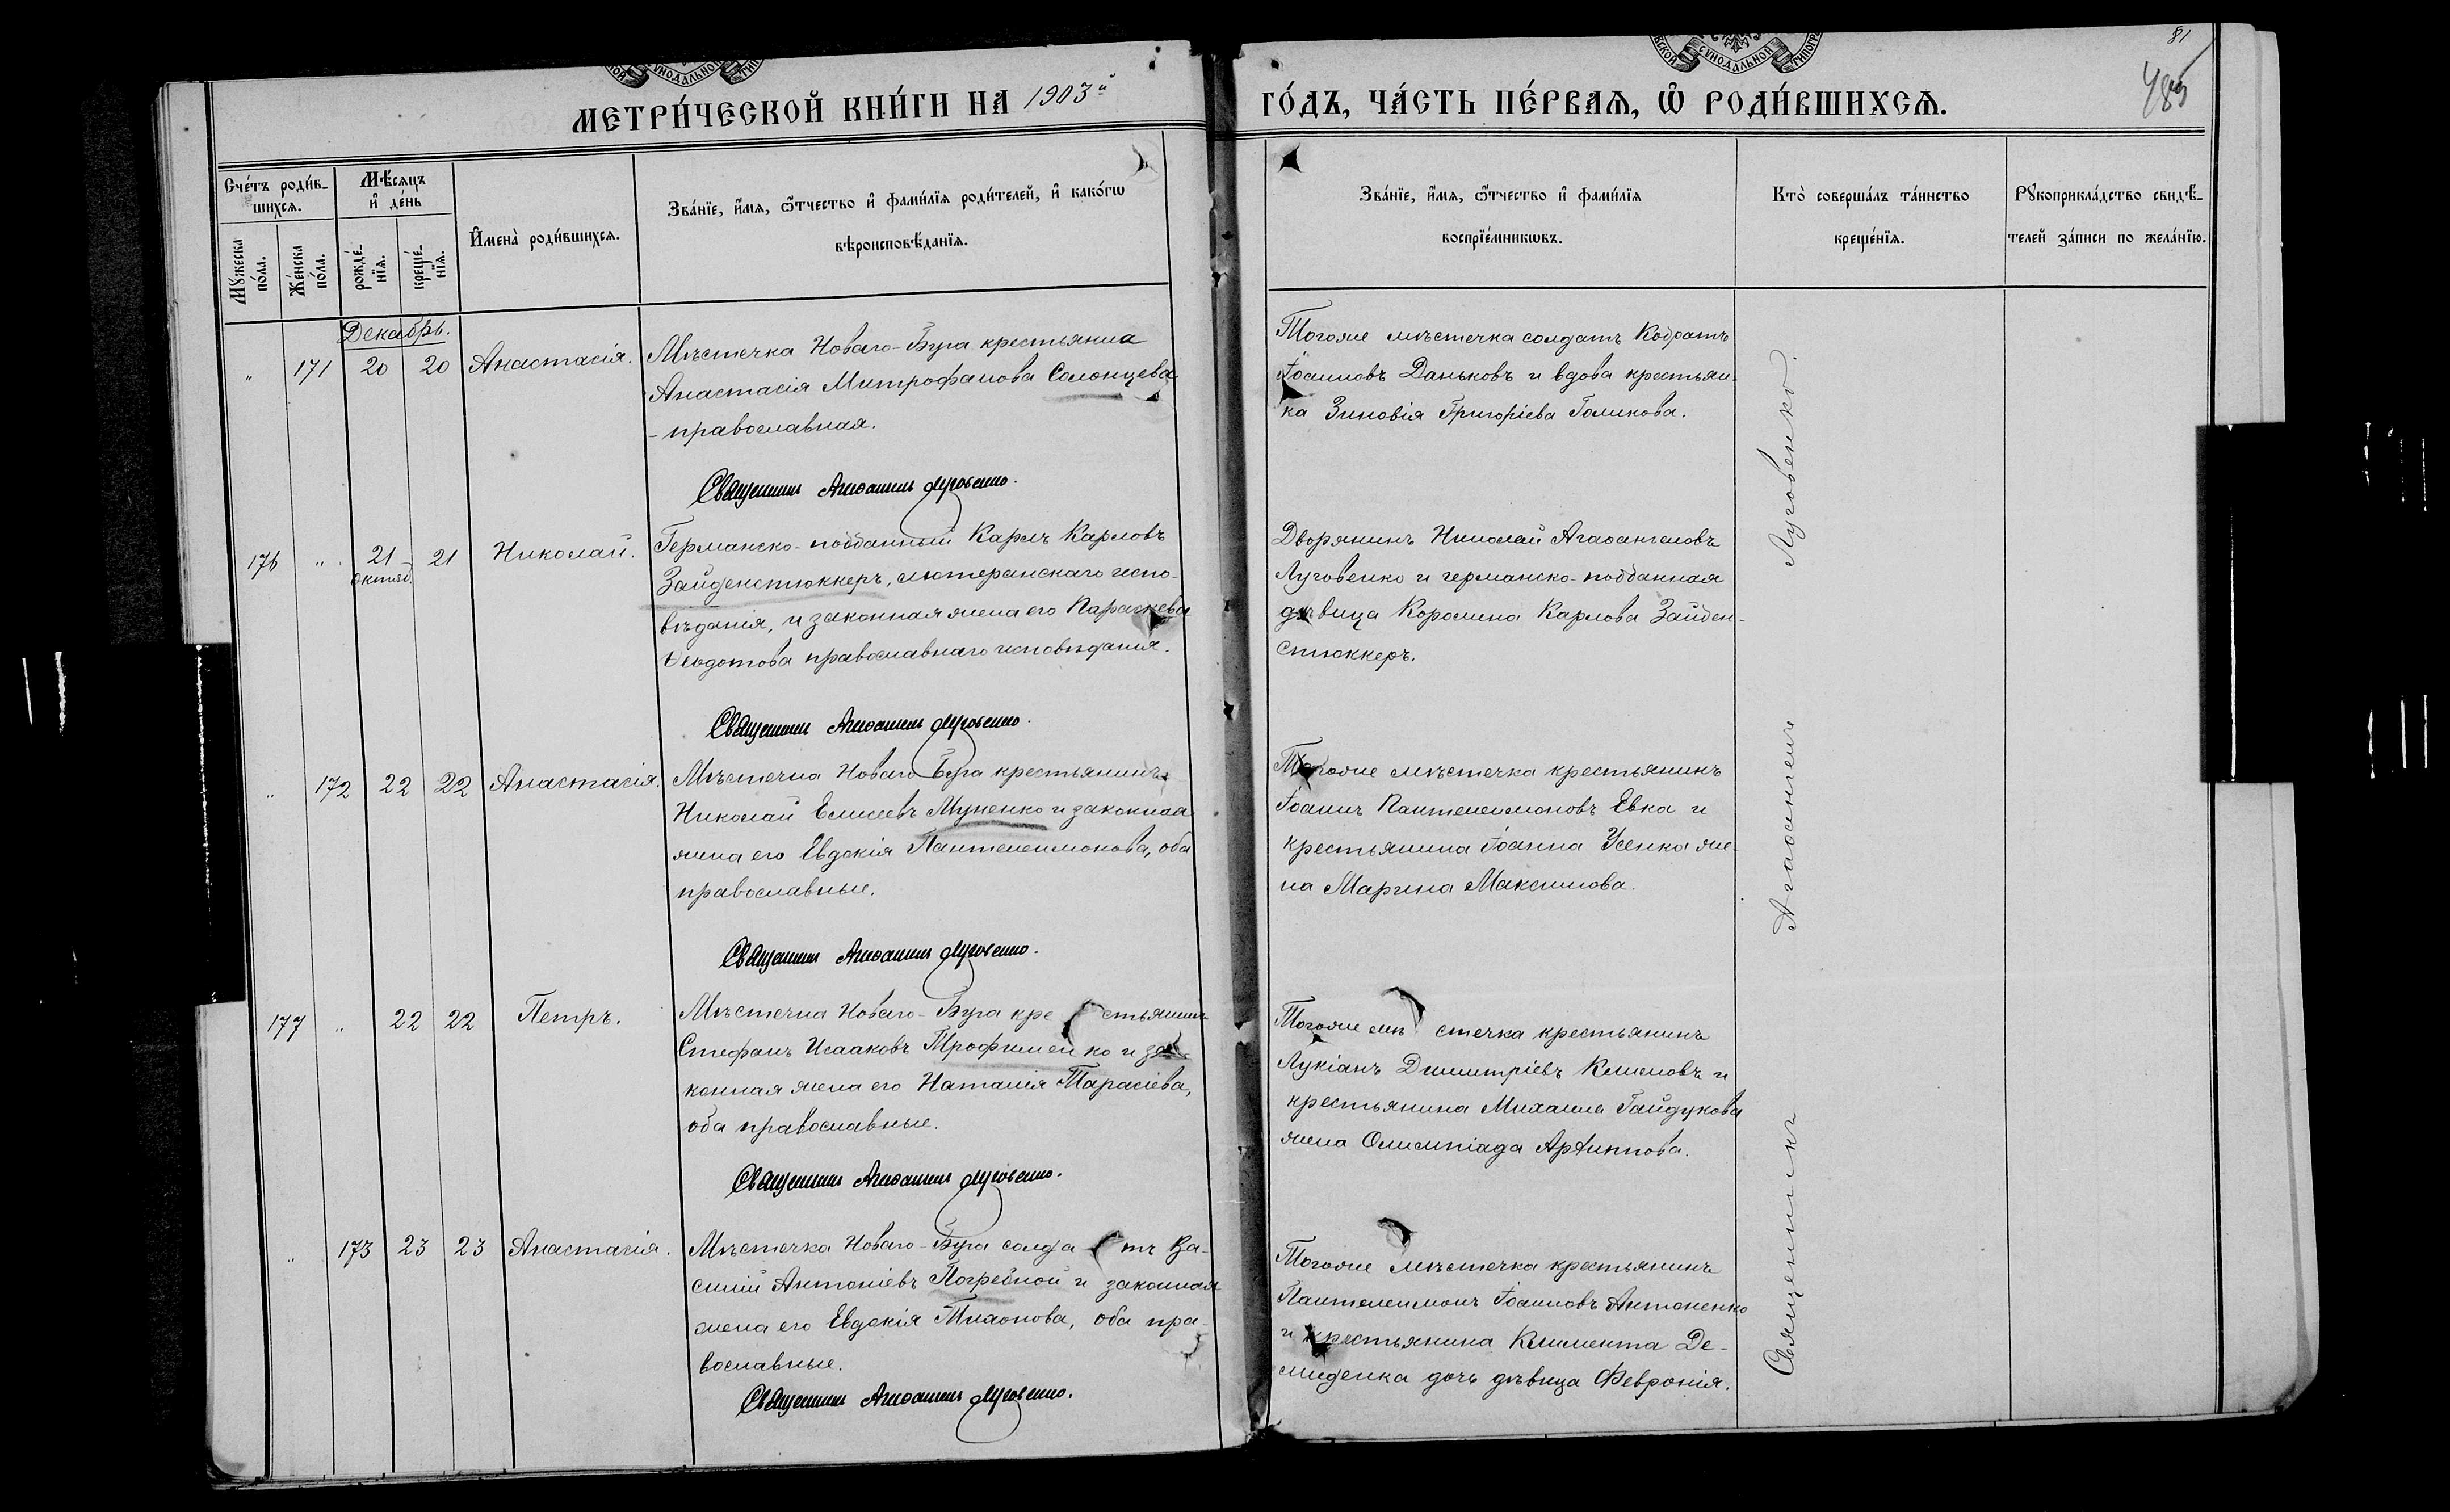 МЕТРИ́ЧЕСКОЙ КНИ́ГИ НА 1903й
ГО́ДЪ, ЧА́СТЬ ПЕ́РВАѦ, Ѿ РОДИ́ВШИХСѦ.
81
485
Сче́тъ роди́в-
шихсѧ.
Мѣ́сѧцъ
и҆ де́нь
Мꙋ́жеска
по́ла.
Же́нска
по́ла.
рожде́-
нїѧ.
креще́-
нїѧ.
И҆мена̀ роди́вшихсѧ.
Зва́нїе, и҆́мѧ, ѻ҆́тчество и҆ фами́лїѧ роди́телей, и҆ како́гѡ
вѣроисповѣ́данїѧ.
Зва́нїе, и҆́мѧ, ѻ҆́тчество и҆ фами́лїѧ
воспрїе́мникѡвъ.
Кто̀ соверша́лъ та́инство
креще́нїѧ.
Рꙋкоприкла́дство свидѣ́-
телей за́писи по жела́нїю.
Декабрь.
" 171 20 20 Анастасія.
Мѣстечка Новаго-Буга крестьянка
Анастасія Митрофанова Солонцева
- православная.
Священникъ Агаѳангелъ Луговенко.
Тогоже мѣстечка солдатъ Кодратъ
Іоанновъ Даньковъ и вдова крестьян-
ка Зиновія Григоріева Голикова.
176 " 21 21 Николай.
Октяб.
Германско-подданный Карлъ Карловъ
Зайденстюккеръ, лютеранскаго испо-
вѣданія, и законная жена его Параскева
Ѳеодотова православнаго исповѣданія.
Священникъ Агаѳангелъ Луговенко.
Дворянинъ Николай Агаѳангеловъ
Луговенко и германско-подданная
дѣвица Королина Карлова Зайден-
стюккеръ.
" 172 22 22 Анастасія.
Мѣстечка Новаго Буга крестьянинъ
Николай Елисеевъ Муненко и законная
жена его Евдокія Пантелеимонова, оба
православные.
Священникъ Агаѳангелъ Луговенко.
Тогоже мѣстечка крестьянинъ
Іоаннъ Пантелеимоновъ Евка и
крестьянина Іоанна Усенка же-
на Марина Максимова.
177 " 22 22 Петръ.
Мѣстечка Новаго-Буга крестьянинъ
Стефанъ Исааковъ Трофименко и за-
конная жена его Наталія Тарасіева,
оба православные.
Священникъ Агаѳангелъ Луговенко.
Тогоже мѣстечка крестьянинъ
Лукіанъ Димитріевъ Климовъ и
крестьянина Михаила Гайдукова
жена Олимпіада Архиппова.
" 173 23 23 Анастасія.
Мѣстечка Новаго-Буга солдатъ Ва-
силій Антоніевъ Погребной и законная
жена его Евдокія Тихонова, оба пра-
вославные.
Священникъ Агаѳангелъ Луговенко.
Тогоже мѣстечка крестьянинъ
Пантелеимонъ Іоанновъ Антоненко
и крестьянина Климента Де-
миденка дочь дѣвица Февронія.
Священникъ Агаѳангелъ Луговенко.